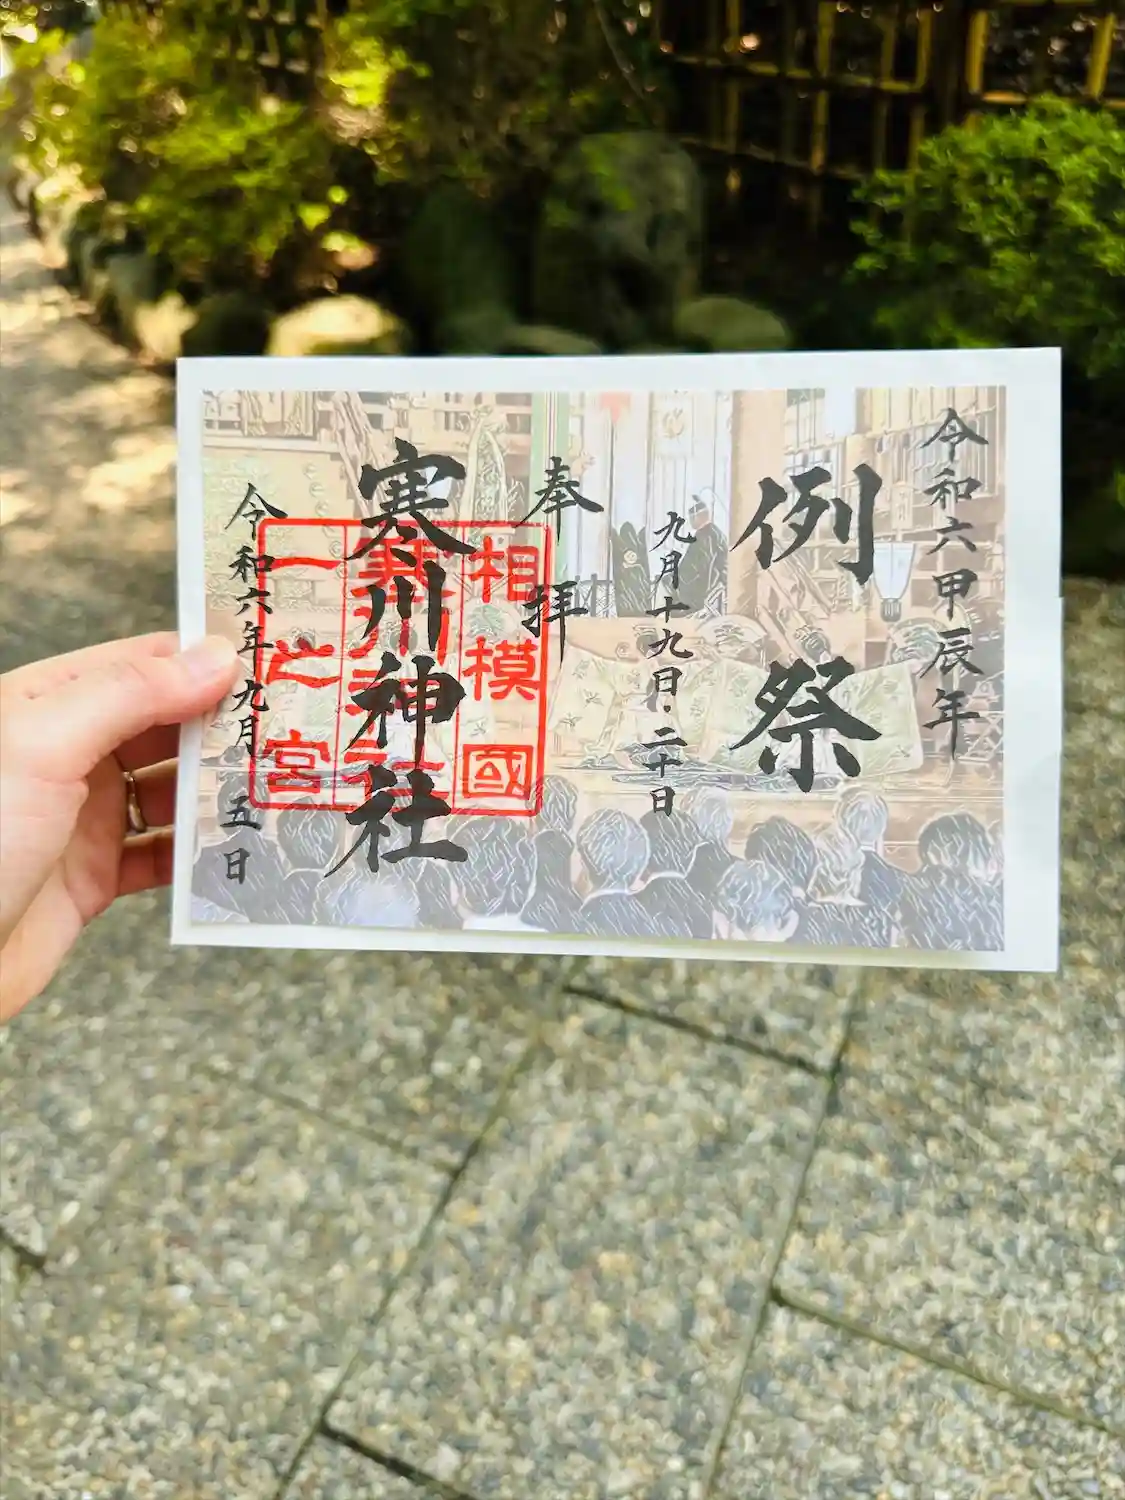 令和六甲辰年
例祭
九月十九日・二十日
奉拝
寒川神社
令和六年九月五日
相模國
寒川神社
一之宮